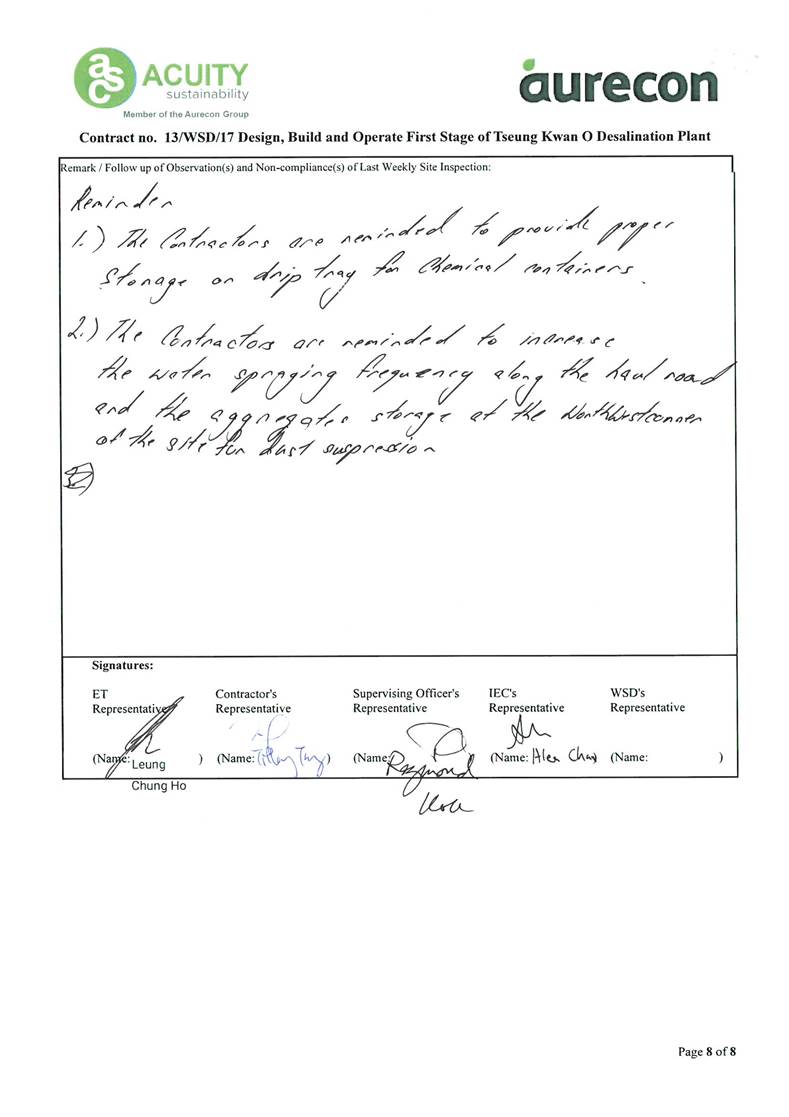 asc ACUITY
sustainability
Member of the Aurecon Group
aurecon
Contract no. 13/WSD/17 Design, Build and Operate First Stage of Tseung Kwan O Desalination Plant
Remark / Follow up of Observation(s) and Non-compliance(s) of Last Weekly Site Inspection:
Reminder
1.) The Contractors are reminded to provide proper
storage or drip tray for Chemical containers.
2.) The Contractors are reminded to increase
the water spraying frequency along the haul road
and the aggregates storage at the NorthWest conner
of the site for dust suspression
Signatures:
ET Representative
Contractor's Representative
Supervising Officer's Representative
IEC's Representative
WSD's Representative
(Name: Leung Chung Ho )
(Name: )
(Name: Raymond
(Name: Alex
(Name: )
Page 8 of 8